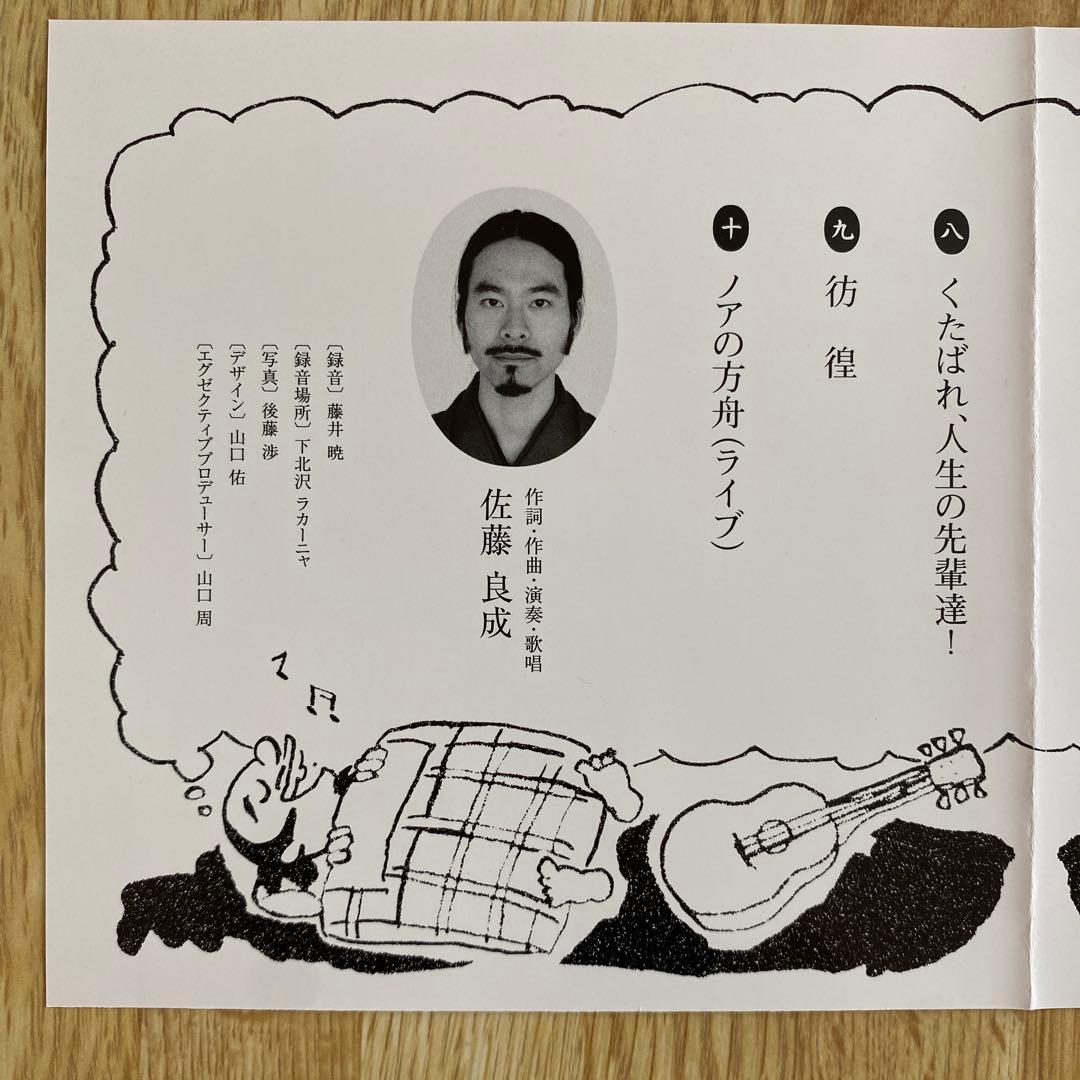 八 くたばれ、人生の先輩達！
九 彷徨
十 ノアの方舟（ライブ）
作詞・作曲・演奏・歌唱
佐藤 良成
〔録音〕 藤井 暁
〔録音場所〕 下北沢 ラカーニャ
〔写真〕 後藤 渉
〔デザイン〕 山口 佑
〔エグゼクティブプロデューサー〕 山口 周